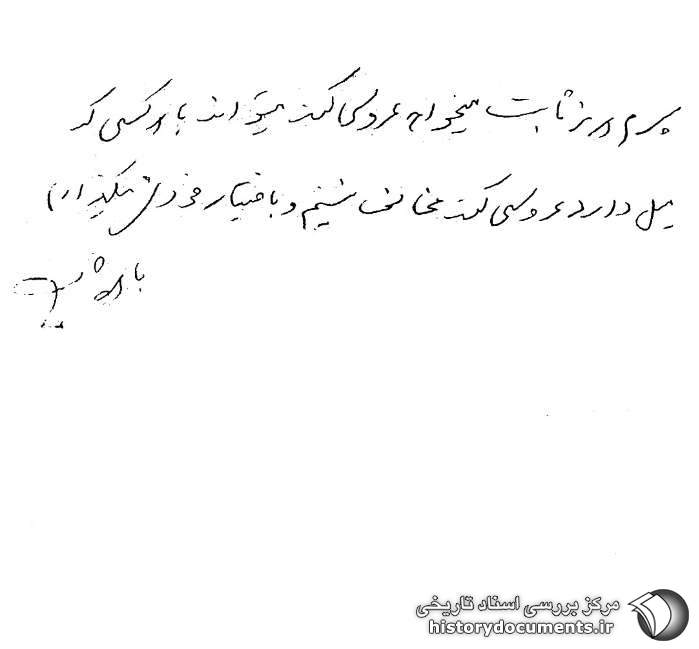 پسرم هرمز ثابت میخواهد عروسی کند میتواند با هر کسی که
میل دارد عروسی کند مخالف نیستم و باختیار خودش میگذارم
ثابت
مرکز بررسی اسناد تاریخی
historydocuments.ir